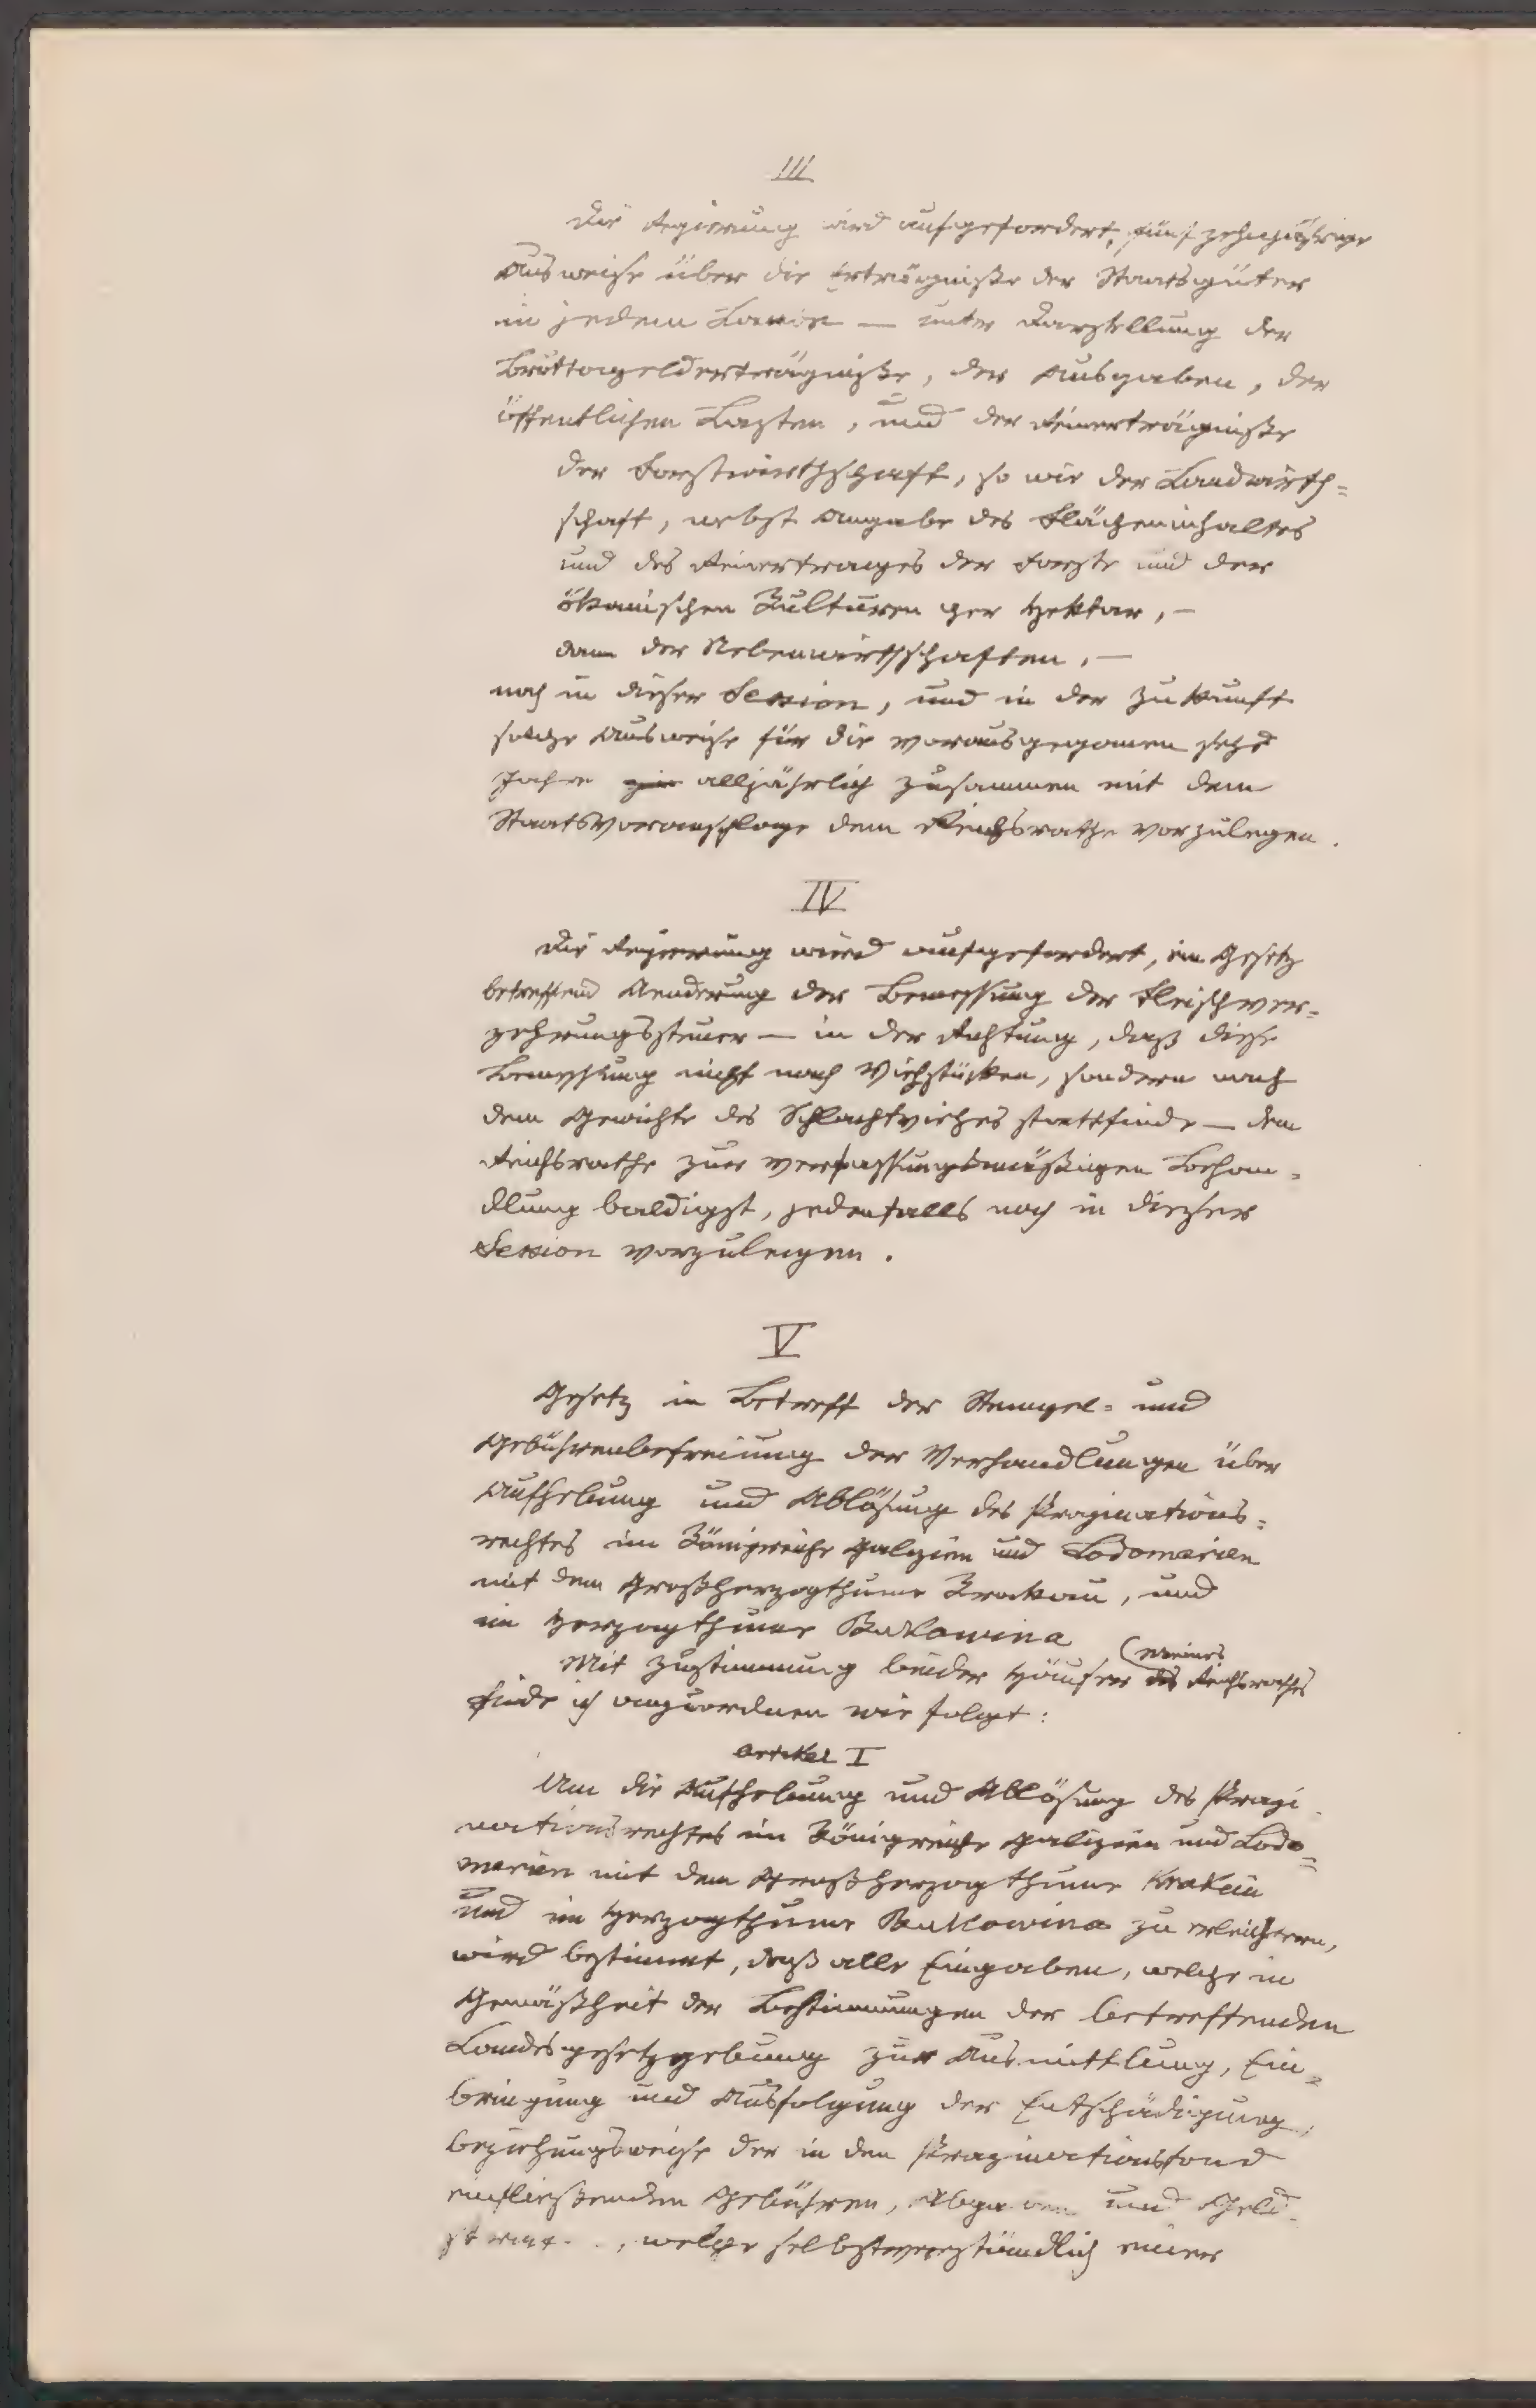 III
Die Regierung wird aufgefordert, fünfzehnjährige
Ausweise über die Erträgniße der Staatsgüter
in jedem Lande — unter Darstellung der
Bruttogelderträgniße, der Ausgaben, der
öffentlichen Lasten, und der Reinerträgniße
der Forstwirthschaft, so wie der Landwirth=
schaft, nebst Angabe des Flächeninhaltes
und des Reinertrages der Forste und der
ökonischen Kulturen per Hektar, —
dann der Nebenwirthschaften, —
noch in dieser Session, und in der Zukunft
solche Ausweise für die vorausgegangenen
Jahre alljährlich zusammen mit dem
Staatsvoranschlage dem Reichsrathe vorzulegen.
IV
Die Regierung wird aufgefordert, ein Gesetz
betreffend Aenderung der Bemessung der Fleischver=
zehrungssteuer — in der Richtung, daß diese
Bemessung nicht nach Viehstücken, sondern nach
dem Gewichte des Schlachtviehes stattfinde — dem
Reichsrathe zur verfassungsmäßigen Behan=
dlung baldigst, jedenfalls noch in dieser
Session vorzulegen.
V
Gesetz in Betreff der Stempel= und
Gebührenbefreiung der Verhandlungen über
Aufhebung und Ablösung des Propinations=
rechtes im Königreiche Galizien und Lodomerien
mit dem Großherzogthume Krakau, und
im Herzogthume Bukowina
(meines
Mit Zustimmung beider Häuser des Reichsrathes
finde ich anzuordnen wie folgt:
Artikel I
Um die Aufhebung und Ablösung des Propi
nationsrechtes im Königreiche Galizien und Lodo=
merien mit dem Großherzogthume Krakau
und im Herzogthume Bukowina zu erleichtern,
wird bestimmt, daß alle Eingaben, welche in
Gemäßheit der Bestimmungen der betreffenden
Landesgesetzgebung zur Ausmittlung, Ein=
bringung und Ausfolgung der Entschädigung,
beziehungsweise der in den Propinationsfond
einfließenden Gebühren, Abgaben und Geld
, welche selbstverständlich einer